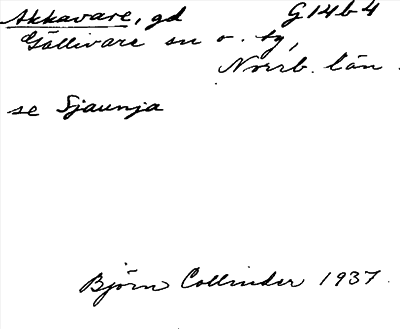 Akkavare, gd G14b4
Gällivare sn o. tg,
Norrb. län.
se Sjaunja
Björn Collinder 1937.